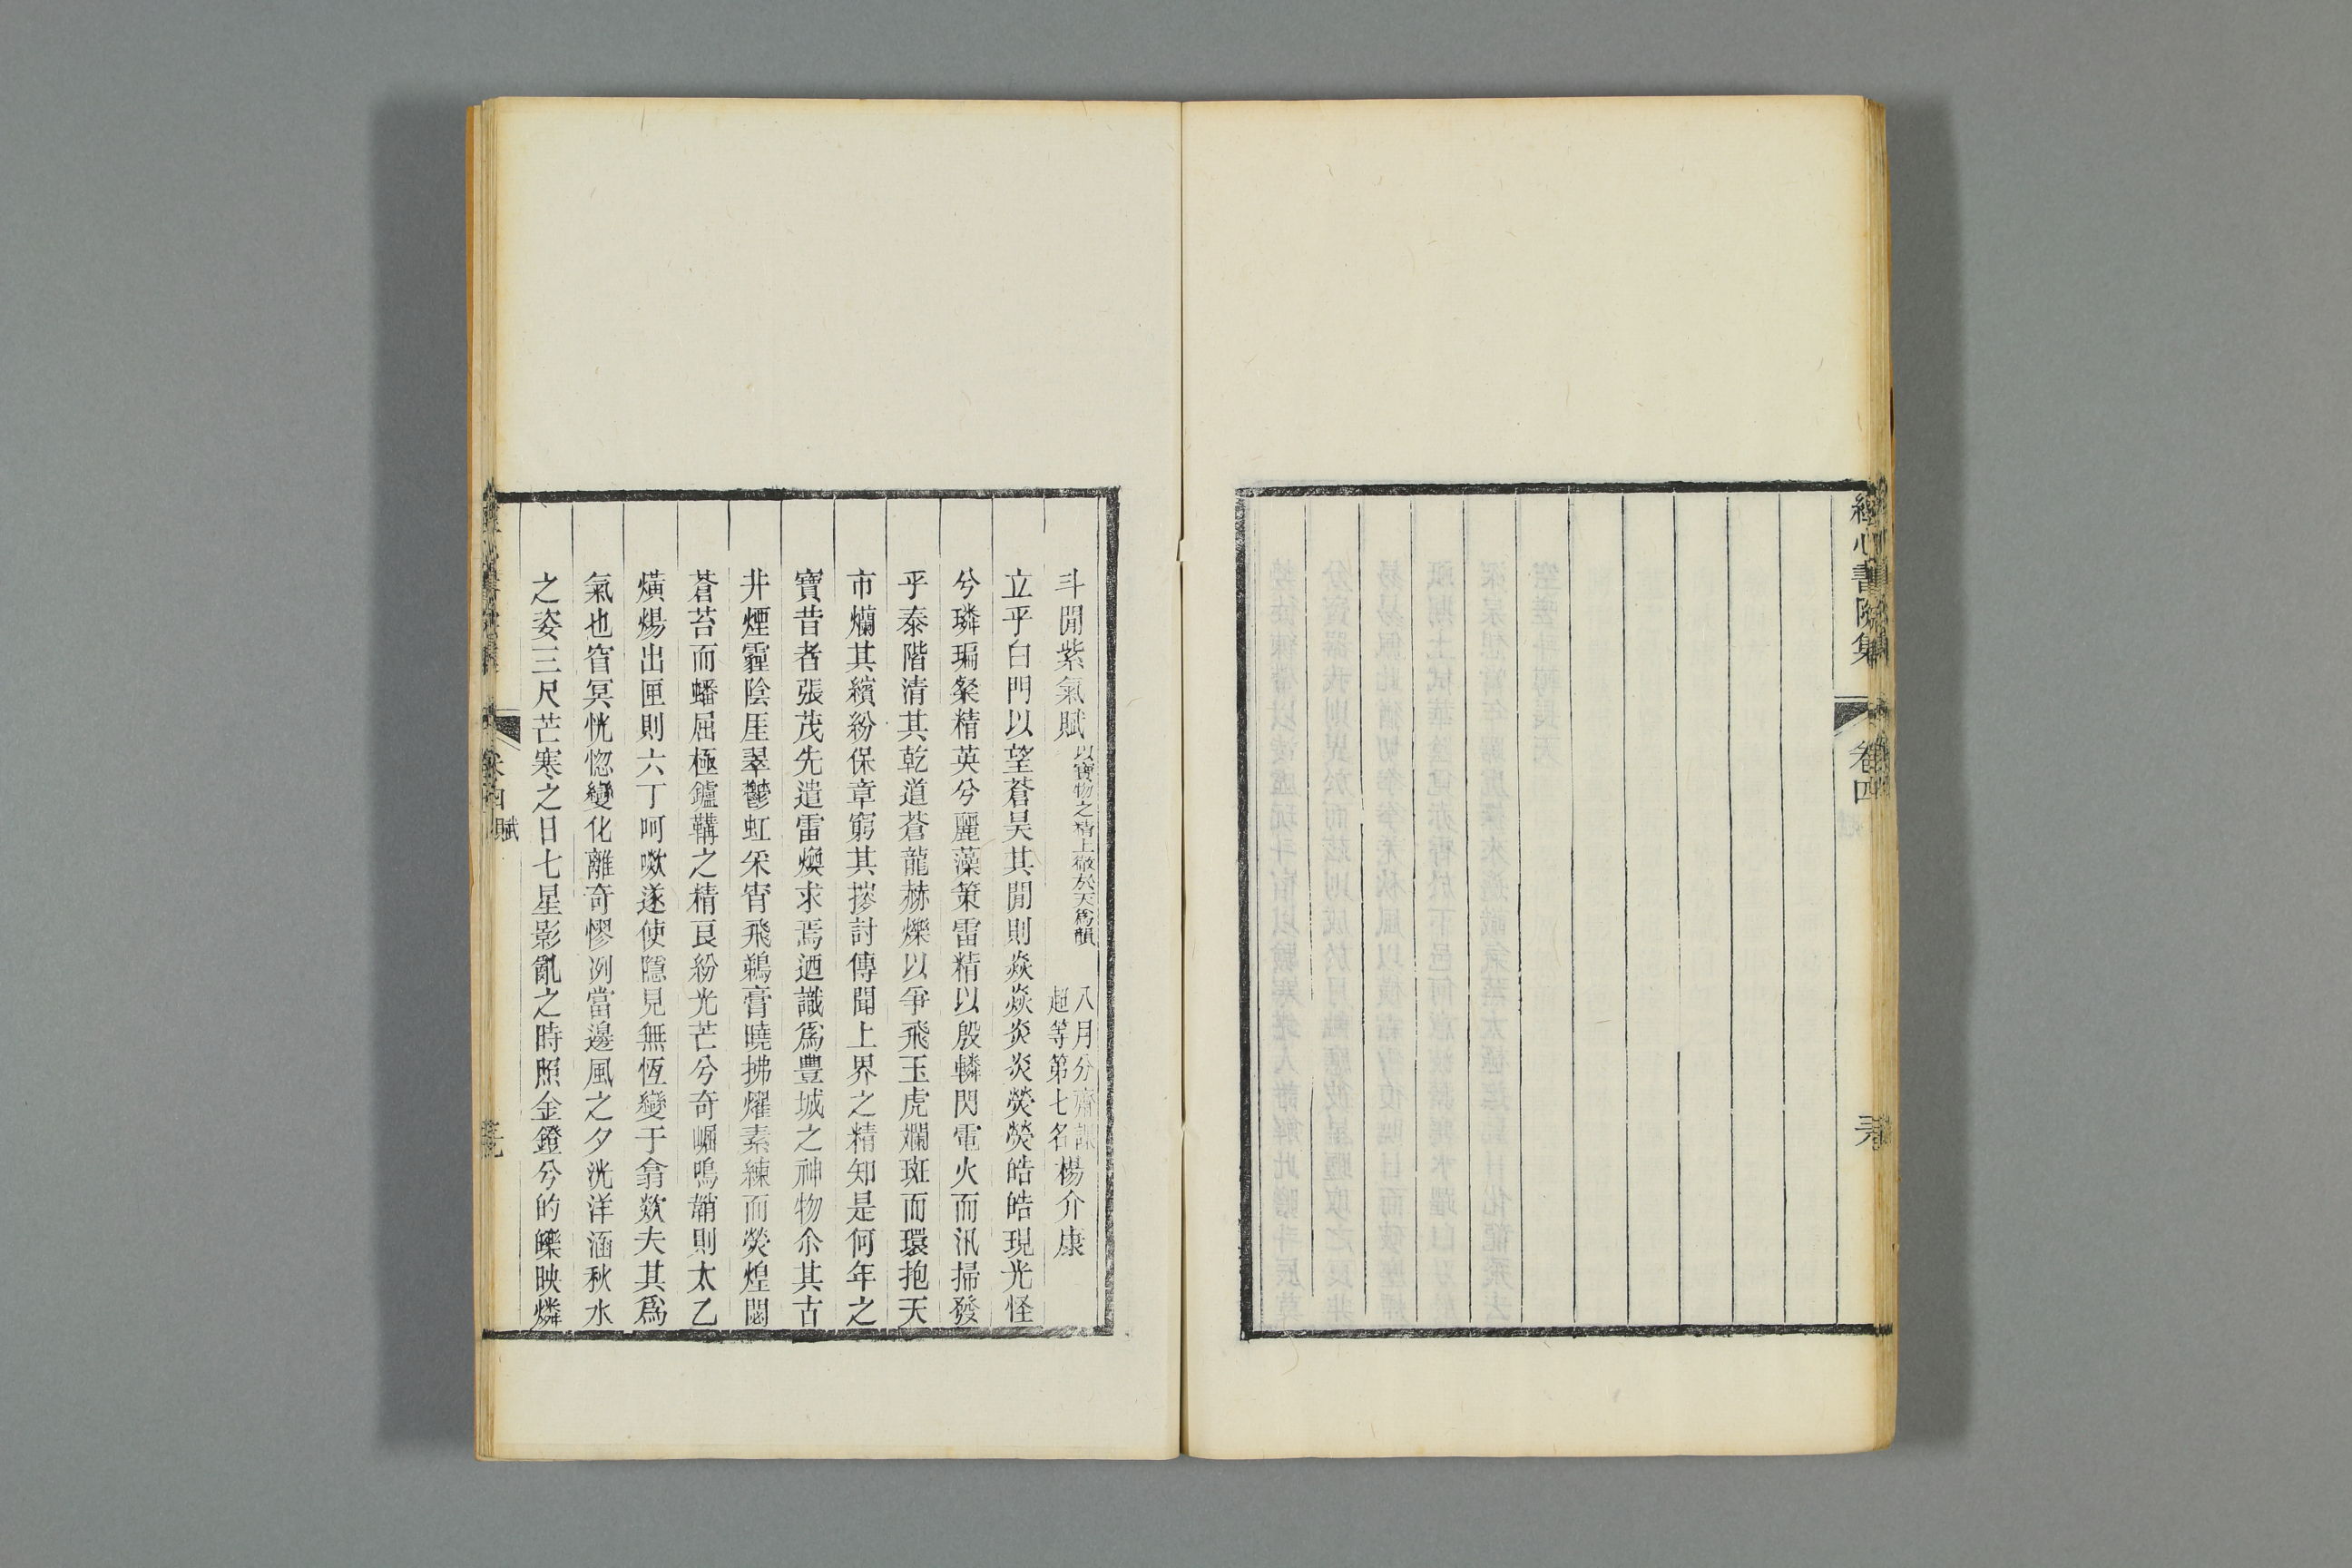 經心書院集
卷四
斗閒紫氣賦 以寶物之精上徹於天爲韻 八月分齋課 超等第七名 楊介康
立乎白門以望蒼昊其閒則焱焱炎炎熒熒皓皓現光怪
兮璘㻞粲精英兮麗藻策雷精以殷轔閃電火而汛掃發
乎泰階清其乾道蒼龍赫爍以爭飛玉虎斕斑而環抱天
市爛其繽紛保章窮其摉討傳聞上界之精知是何年之
寶昔者張茂先遣雷煥求焉迺識爲豐城之神物尒其古
井煙霾陰厓翠鬱虹采宵飛鵜膏曉拂燿素練而熒煌閟
蒼苔而蟠屈極鑪鞲之精良紛光芒兮奇崛鳴鞘則太乙
熿煬出匣則六丁呵歘遂使隱見無恆變于翕歘夫其爲
氣也窅冥恍惚變化離奇憀冽當邊風之夕洸洋涵秋水
之姿三尺芒寒之日七星影亂之時照金鐙兮的皪映燐
卷四 賦